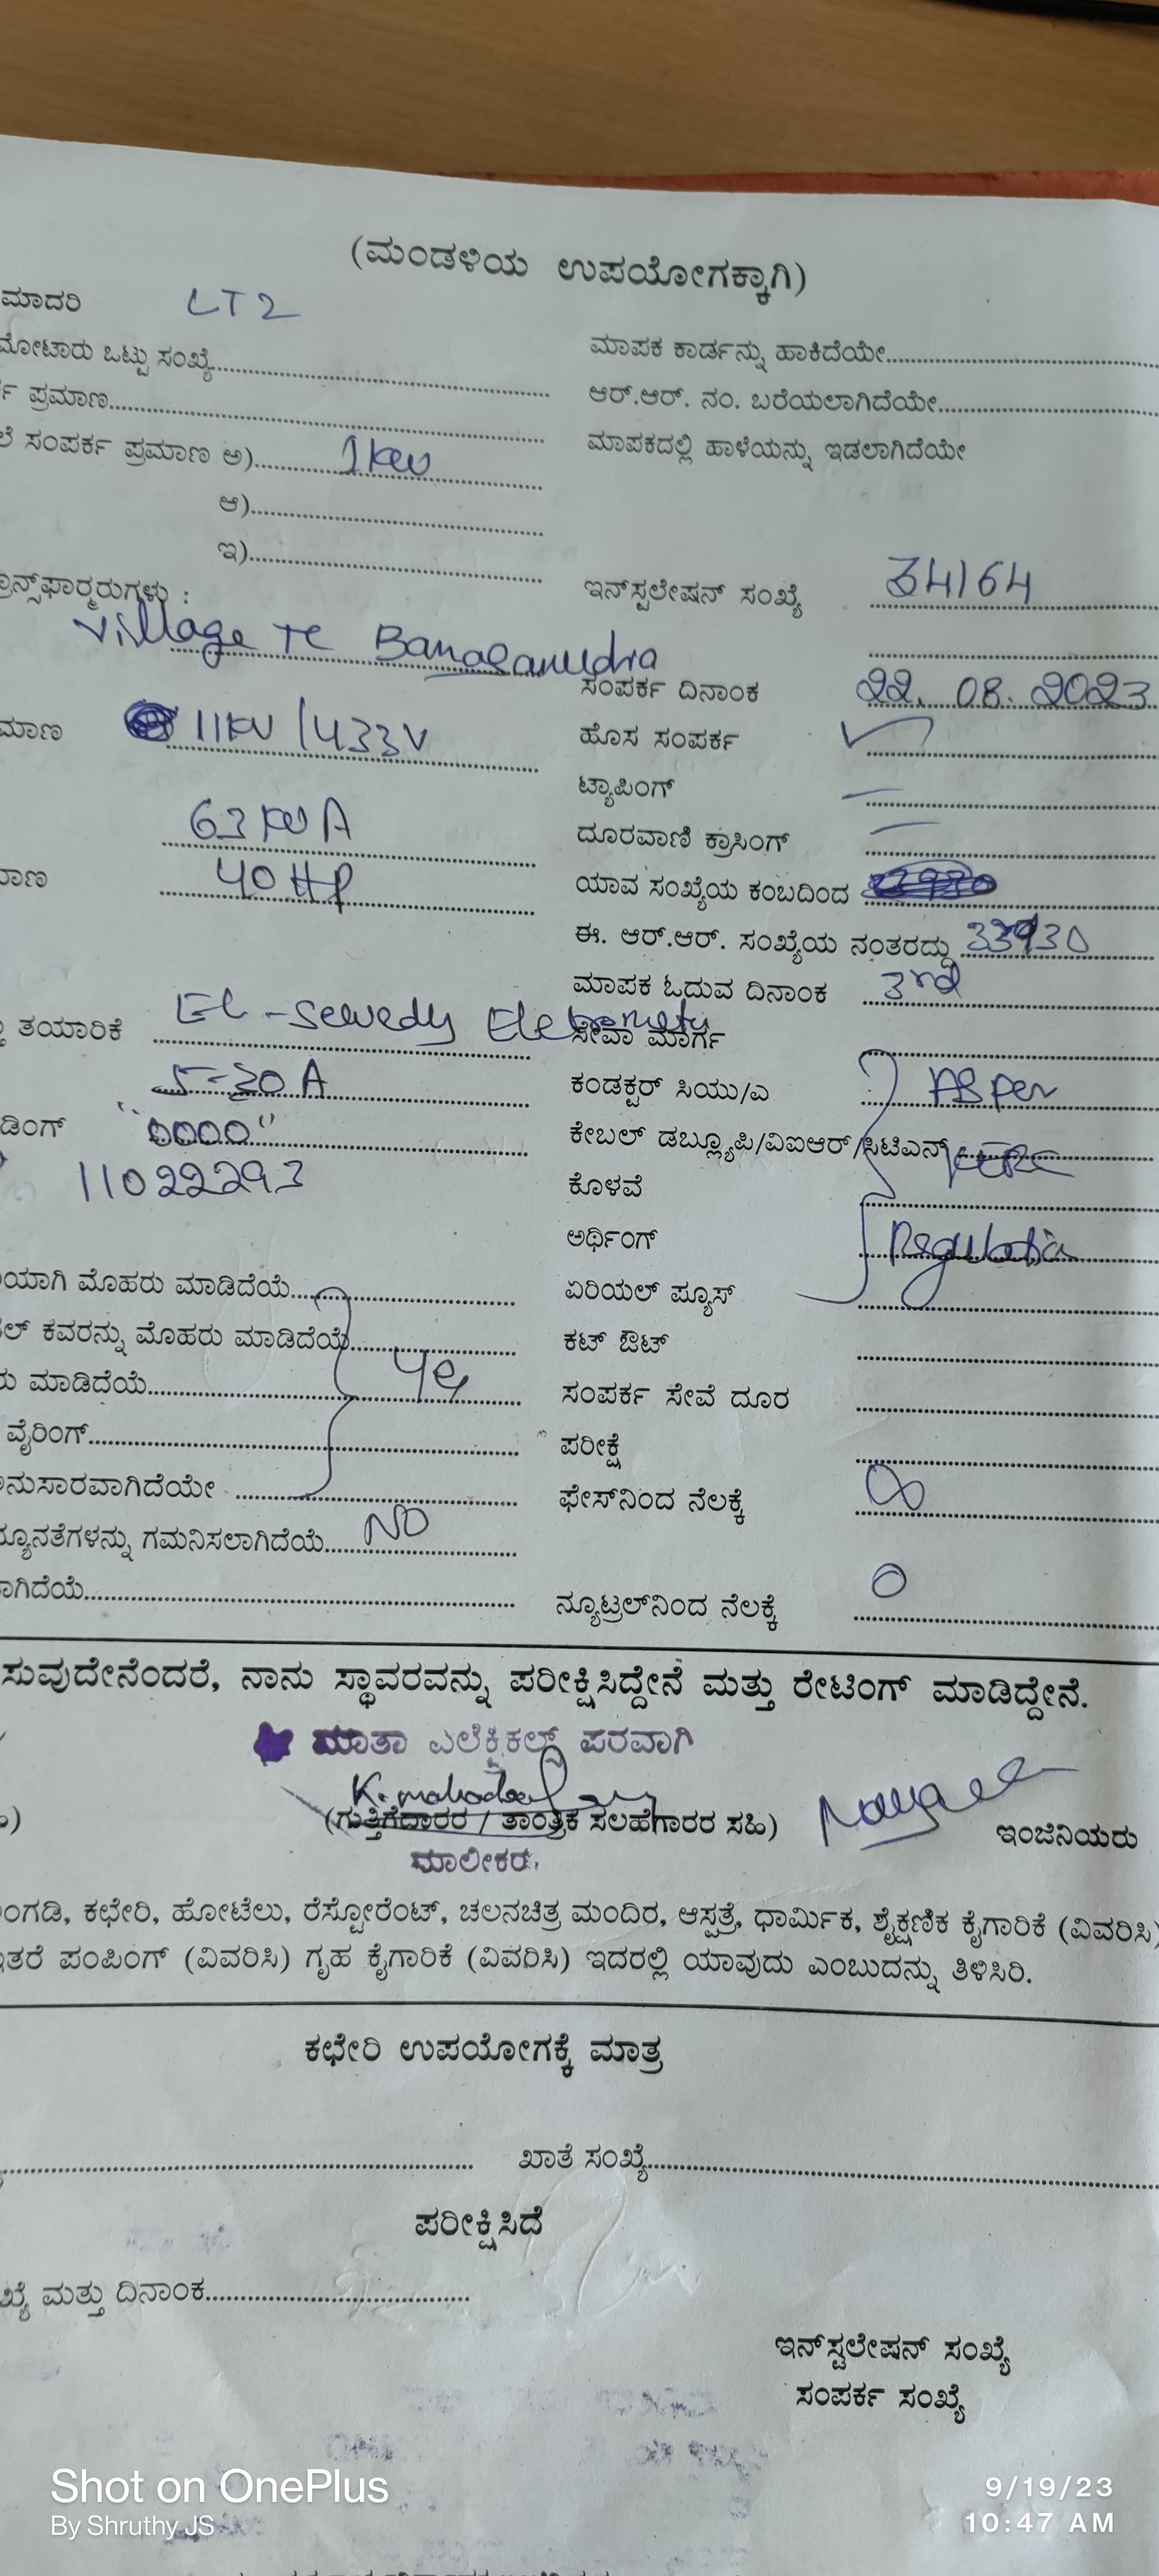 (ಮಂಡಳಿಯ ಉಪಯೋಗಕ್ಕಾಗಿ)
ಮಾದರಿ LT2
ಮೋಟಾರು ಒಟ್ಟು ಸಂಖ್ಯೆ
ಮಾಪಕ ಕಾರ್ಡನ್ನು ಹಾಕಿದೆಯೇ
ಪ್ರಮಾಣ
ಆರ್.ಆರ್. ನಂ. ಬರೆಯಲಾಗಿದೆಯೇ
ಸಂಪರ್ಕ ಪ್ರಮಾಣ ಅ) 1kw
ಮಾಪಕದಲ್ಲಿ ಹಾಳೆಯನ್ನು ಇಡಲಾಗಿದೆಯೇ
ಆ)
ಇ)
ಾನ್ಸ್‌ಫಾರ್ಮರುಗಳು :
ಇನ್‌ಸ್ಟಲೇಷನ್ ಸಂಖ್ಯೆ 34164
Village TC Banasamudra
ಸಂಪರ್ಕ ದಿನಾಂಕ 22.08.2023
ಮಾಣ 11KV/433V
ಹೊಸ ಸಂಪರ್ಕ
ಟ್ಯಾಪಿಂಗ್
63KVA
ದೂರವಾಣಿ ಕ್ರಾಸಿಂಗ್
ಮಾಣ 40HP
ಯಾವ ಸಂಖ್ಯೆಯ ಕಂಬದಿಂದ
ಈ. ಆರ್.ಆರ್. ಸಂಖ್ಯೆಯ ನಂತರದ್ದು 33930
ಮಾಪಕ ಓದುವ ದಿನಾಂಕ 3rd
ತಯಾರಿಕೆ El-Sewedy
ಸೇವಾ ಮಾರ್ಗ
5-30A
ಕಂಡಕ್ಟರ್ ಸಿಯು/ಎ AS Per
ಡಿಂಗ್ "0000"
ಕೇಬಲ್ ಡಬ್ಲ್ಯೂಪಿ/ವಿಐಆರ್/ಸಿಟಿಎನ್
11022293
ಕೊಳವೆ
ಅರ್ಥಿಂಗ್ Regulation
ಯಾಗಿ ಮೊಹರು ಮಾಡಿದೆಯೆ
ಏರಿಯಲ್ ಪ್ಯೂಸ್
ಲ್ ಕವರನ್ನು ಮೊಹರು ಮಾಡಿದೆಯೆ
ಕಟ್ ಔಟ್
ರು ಮಾಡಿದೆಯೆ Yes
ಸಂಪರ್ಕ ಸೇವೆ ದೂರ
ವೈರಿಂಗ್
ಪರೀಕ್ಷೆ
ಅನುಸಾರವಾಗಿದೆಯೇ
ಫೇಸ್‌ನಿಂದ ನೆಲಕ್ಕೆ ∞
ನ್ಯೂನತೆಗಳನ್ನು ಗಮನಿಸಲಾಗಿದೆಯೆ NO
ಾಗಿದೆಯೆ
ನ್ಯೂಟ್ರಲ್‌ನಿಂದ ನೆಲಕ್ಕೆ 0
ಸುವುದೇನೆಂದರೆ, ನಾನು ಸ್ಥಾವರವನ್ನು ಪರೀಕ್ಷಿಸಿದ್ದೇನೆ ಮತ್ತು ರೇಟಿಂಗ್ ಮಾಡಿದ್ದೇನೆ.
ಮಾತಾ ಎಲೆಕ್ಟ್ರಿಕಲ್ಸ್ ಪರವಾಗಿ
(ಗುತ್ತಿಗೆದಾರರ / ತಾಂತ್ರಿಕ ಸಲಹೆಗಾರರ ಸಹಿ)
ಇಂಜಿನಿಯರು
ಮಾಲೀಕರು
ಂಗಡಿ, ಕಛೇರಿ, ಹೋಟೆಲು, ರೆಸ್ಟೋರೆಂಟ್, ಚಲನಚಿತ್ರ ಮಂದಿರ, ಆಸ್ಪತ್ರೆ, ಧಾರ್ಮಿಕ, ಶೈಕ್ಷಣಿಕ ಕೈಗಾರಿಕೆ (ವಿವರಿಸಿ)
ಇತರೆ ಪಂಪಿಂಗ್ (ವಿವರಿಸಿ) ಗೃಹ ಕೈಗಾರಿಕೆ (ವಿವರಿಸಿ) ಇದರಲ್ಲಿ ಯಾವುದು ಎಂಬುದನ್ನು ತಿಳಿಸಿರಿ.
ಕಛೇರಿ ಉಪಯೋಗಕ್ಕೆ ಮಾತ್ರ
ಖಾತೆ ಸಂಖ್ಯೆ
ಪರೀಕ್ಷಿಸಿದೆ
ಖ್ಯೆ ಮತ್ತು ದಿನಾಂಕ
ಇನ್‌ಸ್ಟಲೇಷನ್ ಸಂಖ್ಯೆ
ಸಂಪರ್ಕ ಸಂಖ್ಯೆ
Shot on OnePlus
By Shruthy JS
9/19/23
10:47 AM